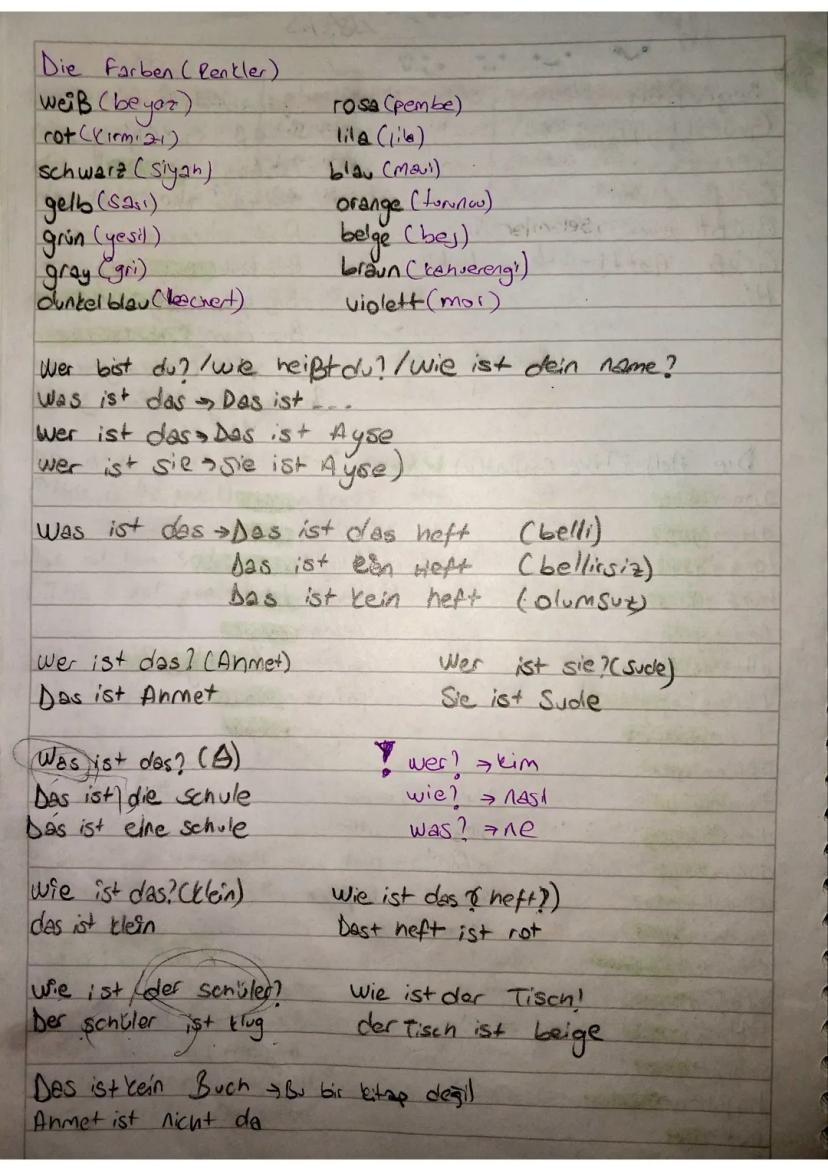 Die Farben (Renkler)
weiß (beyaz) rosa (pembe)
rot (kırmızı) lila (lila)
schwarz (siyah) blau (mavi)
gelb (sarı) orange (turuncu)
grün (yesil) beige (bej)
gray (gri) braun (kahverengi)
dunkelblau (lacivert) violett (mor)
Wer bist du? / wie heißt du? / Wie ist dein name?
Was ist das → Das ist ....
Wer ist das → Das ist Ayse
wer ist sie → sie ist Ayse)
Was ist das → Das ist das heft (belli)
Das ist ein Heft (belirsiz)
Das ist kein heft (olumsuz)
Wer ist das? (Ahmet) Wer ist sie? (Sude)
Das ist Ahmet Sie ist Sude
Was ist das? ! wer? → kim
Das ist die schule wie? → nasıl
Das ist eine schule was? → ne
Wie ist das? (klein) Wie ist das (heft?)
das ist klein Dast heft ist rot
Wie ist der schüler? Wie ist der Tisch!
Der schüler ist klug der Tisch ist beige
Das ist kein Buch → Bu bir kitap değil
Ahmet ist nicht da